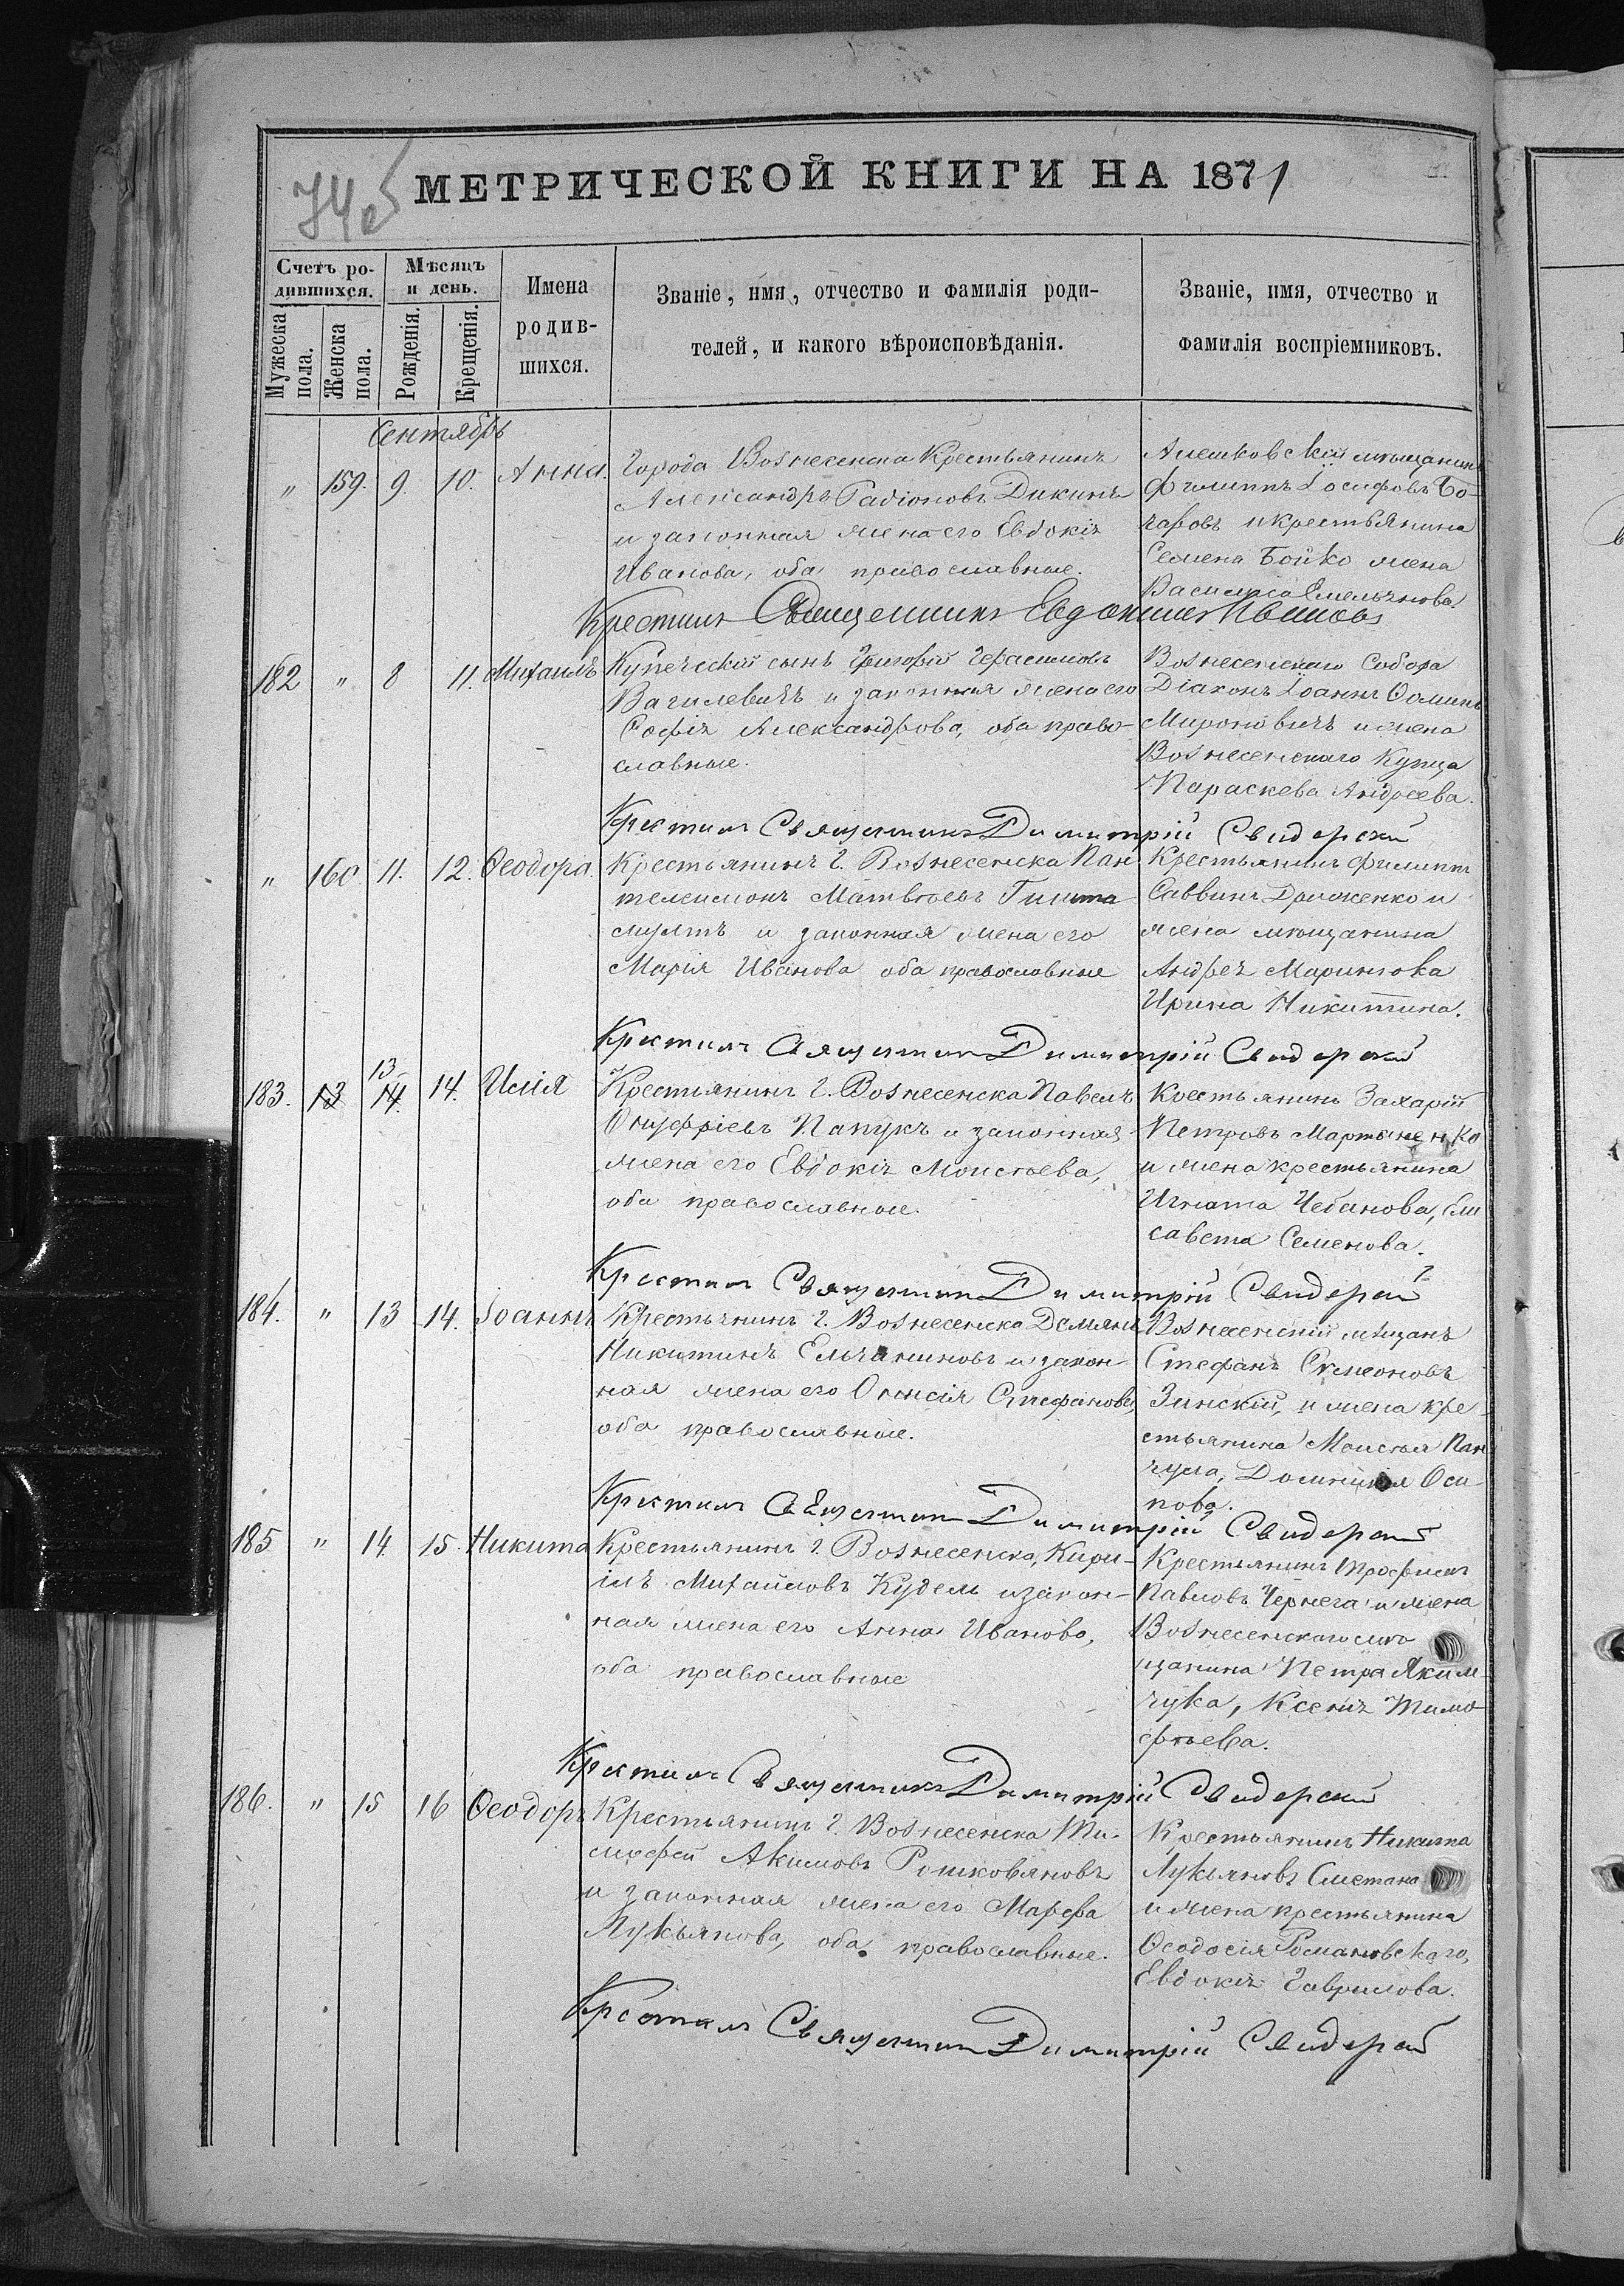 74об
МЕТРИЧЕСКОЙ КНИГИ НА 1871
Счетъ ро-
дившихся.
Мужеска
пола.
Женска
пола.
Мѣсяцъ
и день.
Рожденія.
Крещенія.
Имена
родив-
шихся.
Званіе, имя, отчество и фамилія роди-
телей, и какого вѣроисповѣданія.
Званіе, имя, отчество и
фамилія воспріемниковъ.
Сентябрь
" 159. 9. 10. Анна.
Города Вознесенска Крестьянинъ
Александръ Радіоновъ Дикинъ
и законная жена его Евдокія
Иванова, оба православные.
Алешковскій мѣщанинъ
Филиппъ Іосифовъ Бо-
чаровъ и крестьянина
Семена Бойко жена
Василиса Емельянова.
Крестилъ Священникъ Евдокимъ
182 " 8 11. Михаилъ
Купеческій сынъ Григорій Герасимовъ
Вагилевичъ и законная жена его
Софія Александрова, оба право-
славные.
Вознесенскаго Собора
Діаконъ Іоаннъ Ѳоминъ
Мироновичъ и жена
Вознесенскаго Купца
Параскева Андреева.
Крестилъ Священникъ Димитрій Свидерскій
" 160 11. 12. Ѳеодора.
Крестьянинъ г. Вознесенска Пан
телеимонъ Матвѣевъ
и законная жена его
Марія Иванова оба православные
Крестьянинъ Филиппъ
Саввинъ Дриженко и
жена мѣщанина
Андрея Маринюка
Ирина Никитина.
Крестилъ Священникъ Димитрій Свидерскій
13
183. 13 14. 14. Илія
Крестьянинъ г. Вознесенска Павелъ
Онуфріевъ Папукъ и законная
жена его Евдокія Моисеева,
оба православные.
Крестьянинъ Захарій
Петровъ Мартыненко
и жена крестьянина
Игната Чебанова, Ели
савета Семенова.
Крестилъ Священникъ Димитрій Свидерскій
184. " 13 14. Іоаннъ
Крестьянинъ г. Вознесенска Демьянъ
Никитинъ Ельчаниновъ и закон-
ная жена его Стефанова,
оба православные.
Вознесенскій мѣщанъ
Стефанъ Симеоновъ
Зинскій, и жена кре-
стьянина Моисея Пан
чула, Домникія Оси
пова.
Крестилъ Священникъ Димитрій Свидерскій
185 " 14 15. Никита
Крестьянинъ г. Вознесенска, Кири-
илъ Михайловъ Кудель и закон-
ная жена его Анна Иванова,
оба православные
Крестьянинъ Трофимъ
Павловъ Чернега и жена
Вознесенскаго мѣ
щанина Петра Яким
чука, Ксенія Тимо
фѣева.
Крестилъ Священникъ Димитрій Свидерскій
186. " 15 16 Ѳеодоръ
Крестьянинъ г. Вознесенска Ти-
мофей Акимовъ Рошковановъ
и законная жена его Марфа
Лукьянова, оба православные.
Крестьянинъ Никита
Лукьяновъ Сметана
и жена крестьянина
Ѳеодосія Романовскаго,
Евдокія Гаврилова.
Крестилъ Священникъ Димитрій Свидерскій